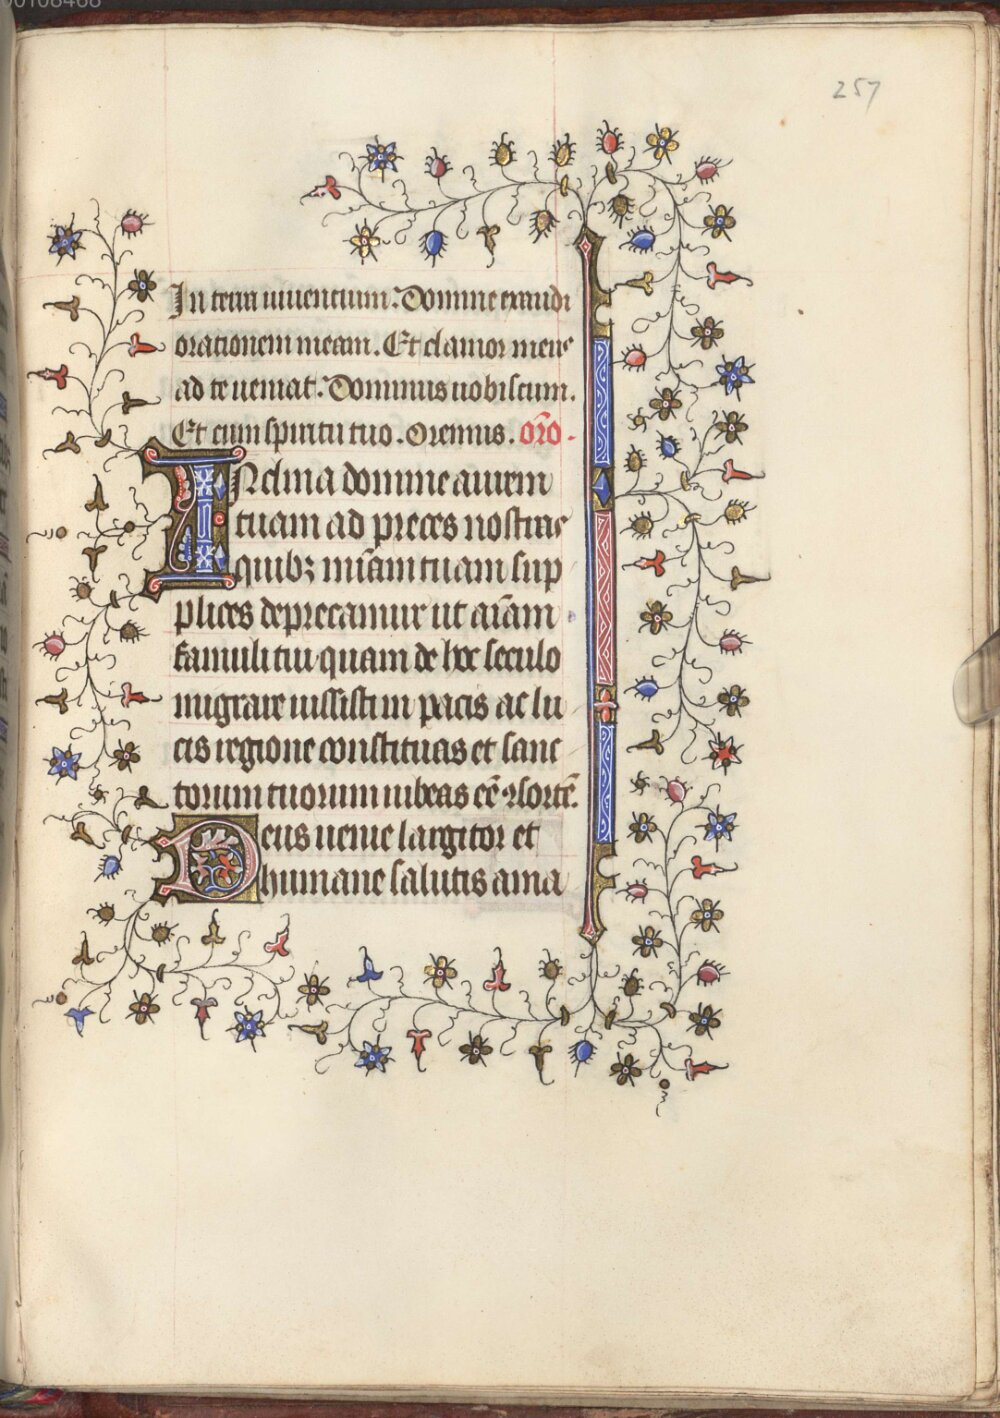 257
In terra uiuentium. Domine exaudi
orationem meam. Et clamor meus
ad te ueniat. Dominus uobiscum.
Et cum spiritu tuo. Oremus. or̄o.
INclina domine aurem
tuam ad preces nostras
quibꝫ mīam tuam sup
plices deprecamur ut aīam
famuli tui quam de hoc seculo
migrare iussisti in pacis ac lu
cis regione constituas et sanc
torum tuorum iubeas eē ꝯsortē.
Deus uenie largitor et
humane salutis ama